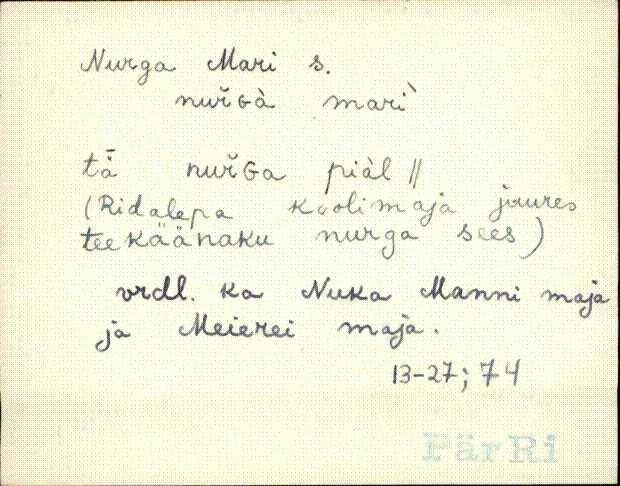 Nurga Mari s.
nuřGà marì
tǟ nuřGa piàl //
(Ridalepa koolimaja juures
teekäänaku nurga sees)
vrdl. ka Nuka Manni maja
ja Meierei maja.
13-27; 74
PärRi